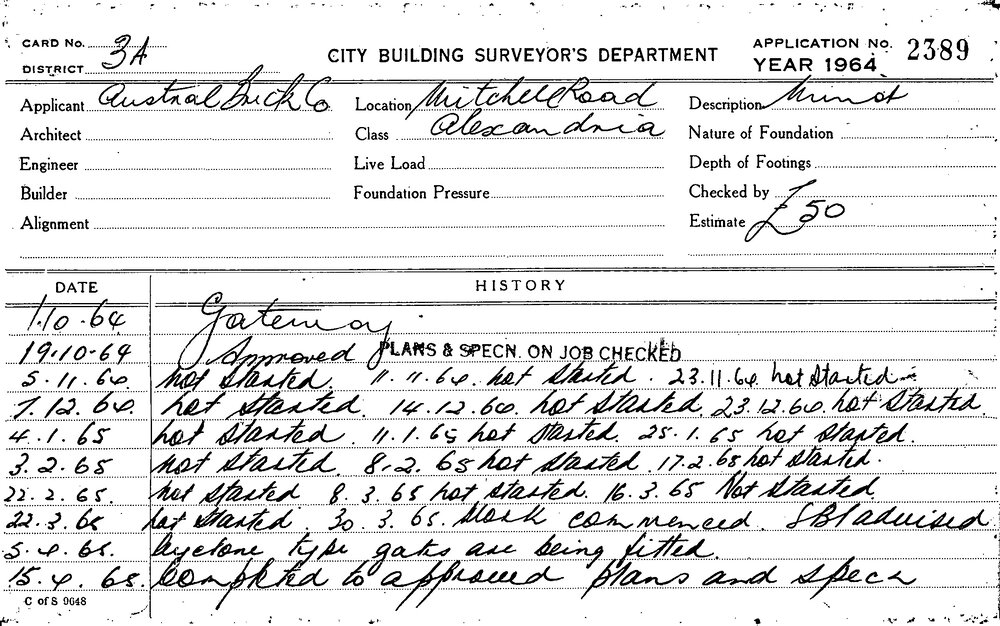 CARD No. 3A
DISTRICT
CITY BUILDING SURVEYOR'S DEPARTMENT
APPLICATION No. 2389
YEAR 1964
Applicant Austral Brick Co Location Mitchell Road Description Minor
Architect Class Alexandria Nature of Foundation
Engineer Live Load Depth of Footings
Builder Foundation Pressure Checked by
Alignment Estimate £50
DATE HISTORY
1.10.64 Gateway
19.10.64 Approved PLANS & SPECN. ON JOB CHECKED
5.11.64. not started. 11.11.64. not started. 23.11.64 not started
7.12.64. not started. 14.12.64. not started. 23.12.64. not started
4.1.65 not started. 11.1.65 not started. 25.1.65 not started.
3.2.65 not started. 8.2.65 not started. 17.2.65 not started.
22.2.65. not started 8.3.65 not started. 16.3.65 Not started
22.3.65 not started. 30.3.65. Work commenced. advised
5.4.65. Cyclone type gates are being fitted.
15.4.65. Completed to approved plans and specn
C of S 9648